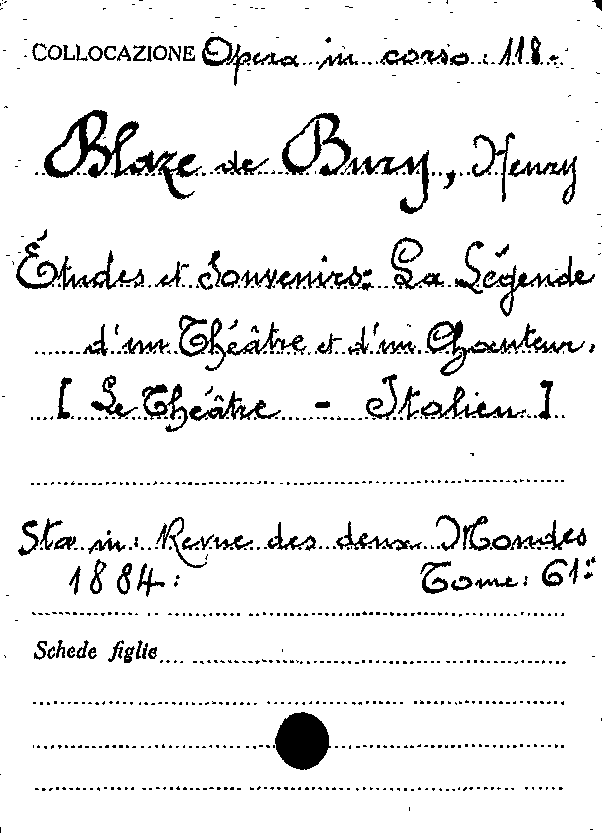 COLLOCAZIONE Opera in corso: 118.
Blaze de Bury, Henry
Études et Souvenirs: La Légende
d'un Théâtre et d'un Chanteur.
[ Le Théâtre - Italien ]
Sta in: Revue des deux Mondes
1884: Tome: 61º
Schede figlie